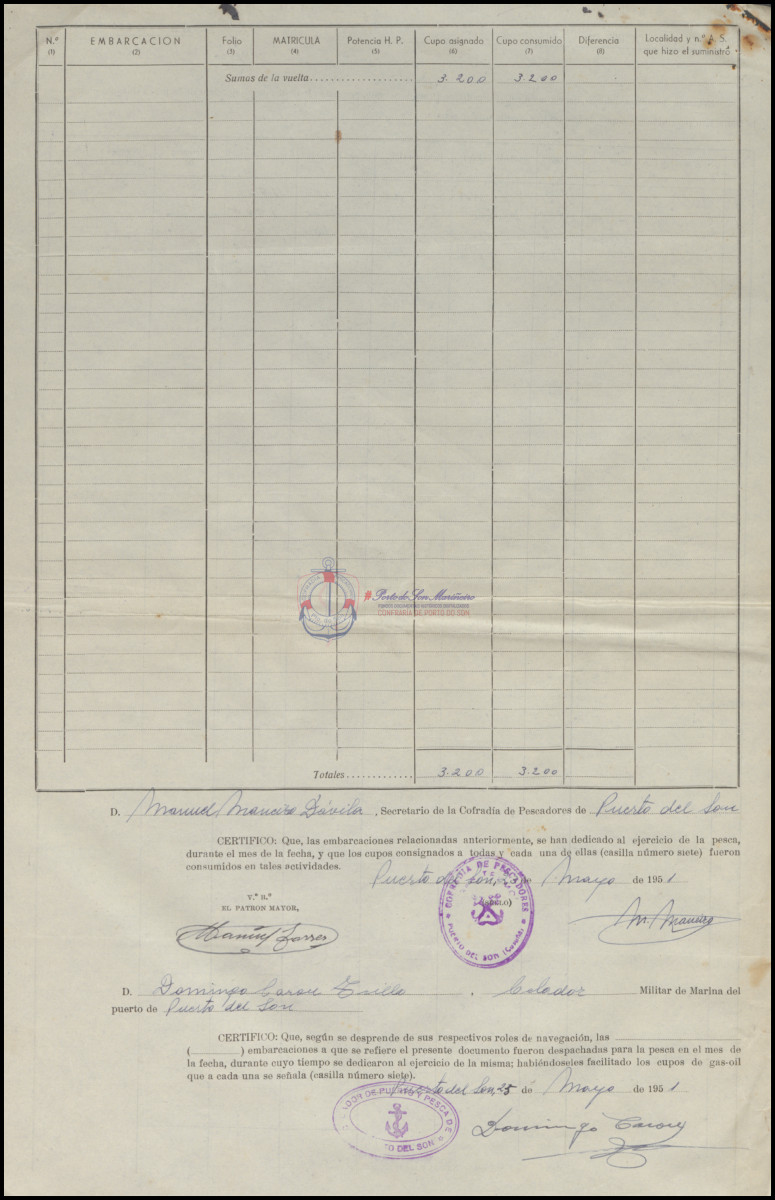 N.º EMBARCACION Folio MATRICULA Potencia H. P. Cupo asignado Cupo consumido Diferencia Localidad y n.º A. S. que hizo el suministro
(1) (2) (3) (4) (5) (6) (7) (8)
Sumas de la vuelta.................... 3.200 3.200
#Porto do Son Mariñeiro
CONFRARÍA DE PORTO DO SON
Totales............. 3.200 3.200
D. Manuel Maneiro Dávila, Secretario de la Cofradía de Pescadores de Puerto del Son
CERTIFICO: Que, las embarcaciones relacionadas anteriormente, se han dedicado al ejercicio de la pesca,
durante el mes de la fecha, y que los cupos consignados a todas y cada una de ellas (casilla número siete) fueron
consumidos en tales actividades.
Puerto del Son, de Mayo de 1951
COFRADIA DE PESCADORES
PUERTO DEL SON (Coruña)
V.º B.º
EL PATRON MAYOR,
Manuel Torres
M. Maneiro
D. Domingo , Celador Militar de Marina del
puerto de Puerto del Son
CERTIFICO: Que, según se desprende de sus respectivos roles de navegación, las
( ) embarcaciones a que se refiere el presente documento fueron despachadas para la pesca en el mes de
la fecha, durante cuyo tiempo se dedicaron al ejercicio de la misma; habiéndoseles facilitado los cupos de gas-oil
que a cada una se señala (casilla número siete).
Puerto del Son, 25 de Mayo de 1951
DE PUERTO Y PESCA DE
DEL SON
Domingo